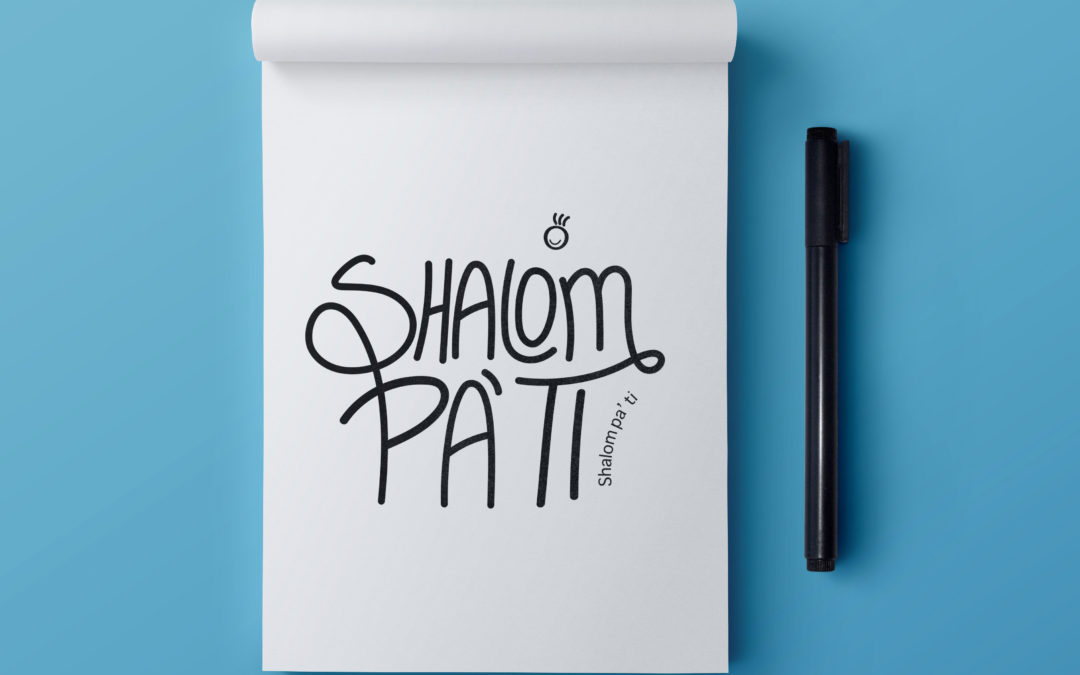 SHALOM
PA'TI
Shalom pa'ti